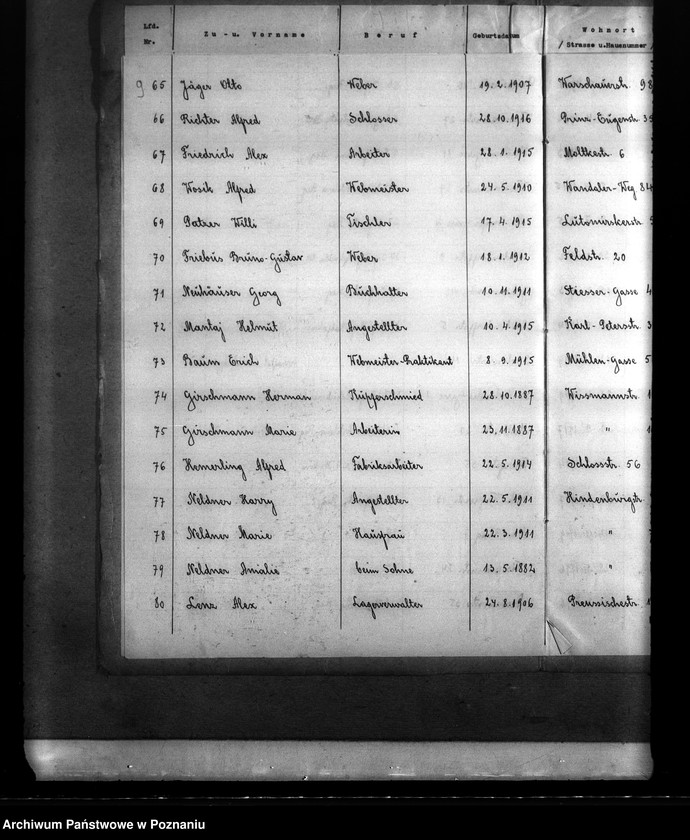 Lfd. Nr. Zu-u. Vorname Beruf Geburtsdatum Wohnort /Strasse u.Hausnummer/
9 65 Jäger Otto Weber 19.2.1907 Warschauerstr. 98
66 Richter Alfred Schlosser 28.10.1916 Prinz-Eugenstr. 35
67 Friedrich Alex Arbeiter 28.1.1915 Moltkestr. 6
68 Wosik Alfred Webmeister 24.5.1910 Wandaler-Weg 84
69 Willi Tischler 17.4.1915 Lutomirskerstr. 5
70 Friebus Bruno-Gustav Weber 18.1.1912 Feldstr. 20
71 Neuhäuser Georg Buchhalter 10.11.1911 -Gasse 4
72 Mantaj Helmut Angestellter 10.4.1915 Karl-Petersstr. 3
73 Baum Erich Webmeister-Praktikant 8.9.1915 Mühlen-Gasse 5
74 Girschmann Herman Kupferschmied 28.10.1887 Wissmannstr. 1
75 Girschmann Marie Arbeiterin 23.11.1887 " 1
76 Hemerling Alfred Fabriksarbeiter 22.5.1914 Schlossstr. 56
77 Neldner Harry Angestellter 22.5.1911 Hindenburgstr.
78 Neldner Marie Hausfrau 22.3.1911 "
79 Neldner Amalie beim Sohne 13.5.1882 "
80 Lenz Alex Lagerverwalter 24.8.1906 Preussischestr. 1
Archiwum Państwowe w Poznaniu